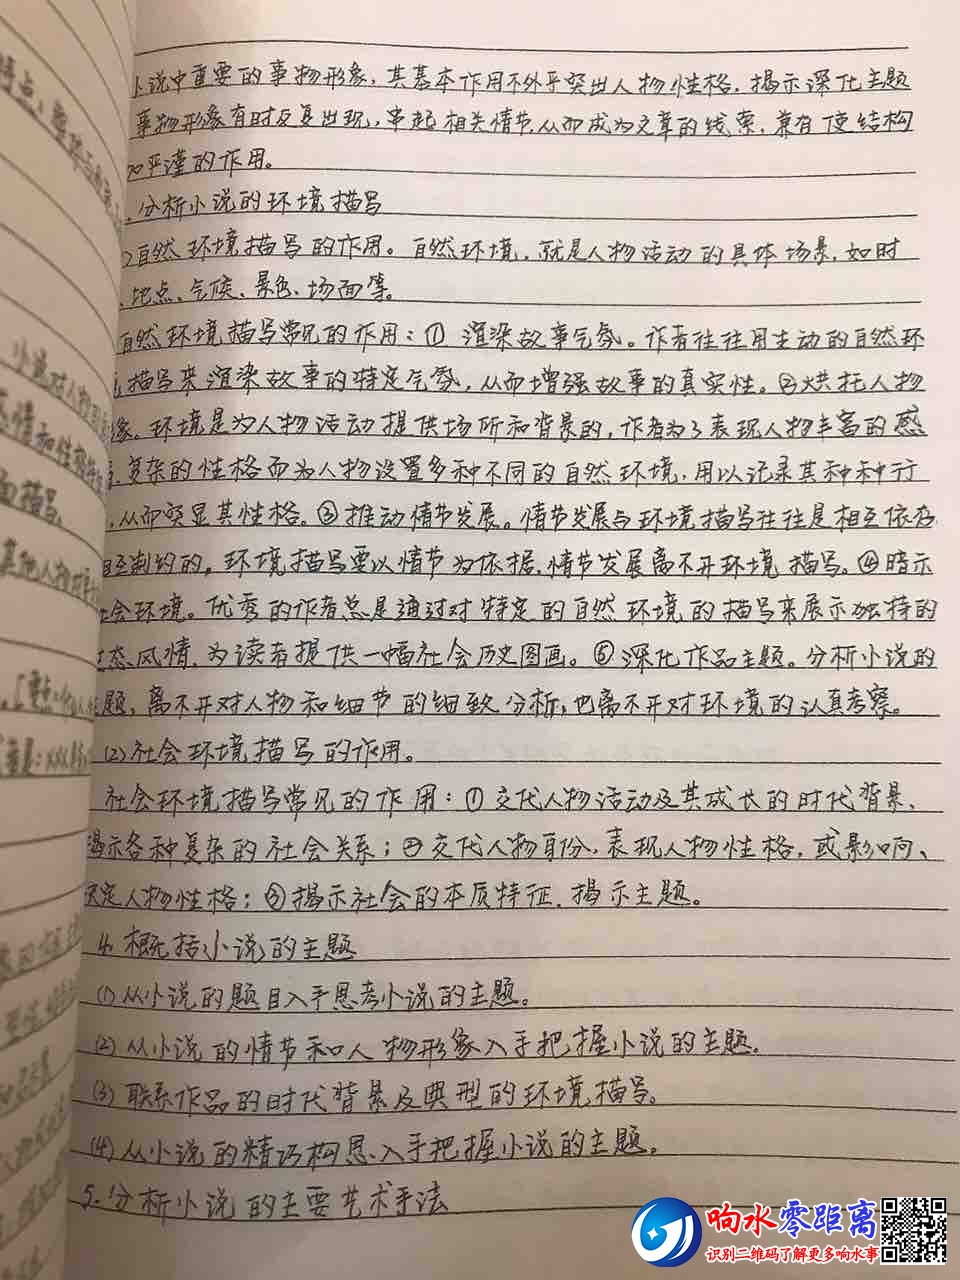 小说中重要的事物形象，其基本作用不外乎突出人物性格，揭示深化主题
事物形象有时反复出现，串起相关情节，从而成为文章的线索，兼有使结构
加严谨的作用。
分析小说的环境描写
自然环境描写的作用。自然环境，就是人物活动的具体场景，如时
、地点、气候、景色、场面等。
自然环境描写常见的作用：① 渲染故事气氛。作者往往用生动的自然环
描写来渲染故事的特定气氛，从而增强故事的真实性。②烘托人物
象。环境是为人物活动提供场所和背景的，作者为了表现人物丰富的感
复杂的性格而为人物设置多种不同的自然环境，用以记录其种种行
，从而突显其性格。③推动情节发展。情节发展与环境描写往往是相互依存
相互制约的。环境描写要以情节为依据，情节发展离不开环境描写。④暗示
社会环境。优秀的作者总是通过对特定的自然环境的描写来展示独特的
态风情，为读者提供一幅社会历史图画。⑤深化作品主题。分析小说的
主题，离不开对人物和细节的细致分析，也离不开对环境的认真考察。
(2)社会环境描写的作用。
社会环境描写常见的作用：①交代人物活动及其成长的时代背景，
揭示各种复杂的社会关系；②交代人物身份，表现人物性格，或影响、
决定人物性格；③揭示社会的本质特征，揭示主题。
4. 概括小说的主题
(1)从小说的题目入手思考小说的主题。
(2)从小说的情节和人物形象入手把握小说的主题。
(3)联系作品的时代背景及典型的环境描写。
(4)从小说的精巧构思入手把握小说的主题。
5. 分析小说的主要艺术手法
响水零距离
识别二维码了解更多响水事